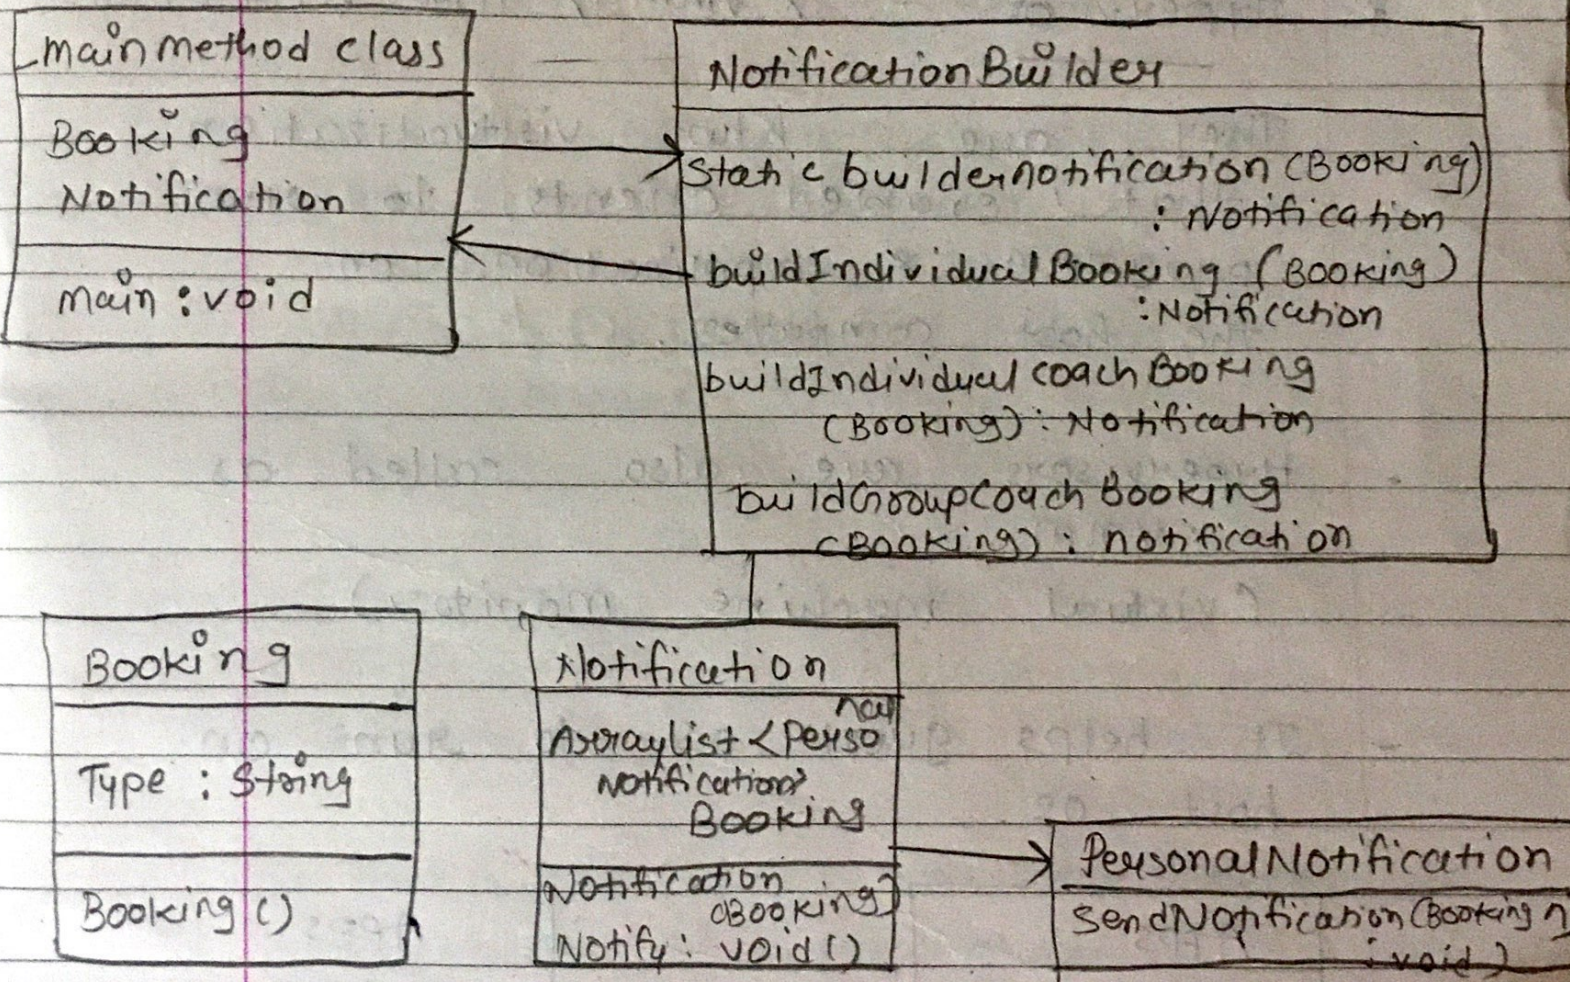 main method class
Booking
Notification
main : void
NotificationBuilder
static buildernotification (Booking)
: Notification
buildIndividualBooking (Booking)
: Notification
buildIndividual coach Booking
(Booking) : Notification
buildGroupCoach Booking
(Booking) : notification
Booking
Type : String
Booking ()
Notification
ArrayList < Perso
nal
Notification>
Booking
Notification
(Booking)
Notify : void ()
PersonalNotification
SendNotification (Booking n
: void )